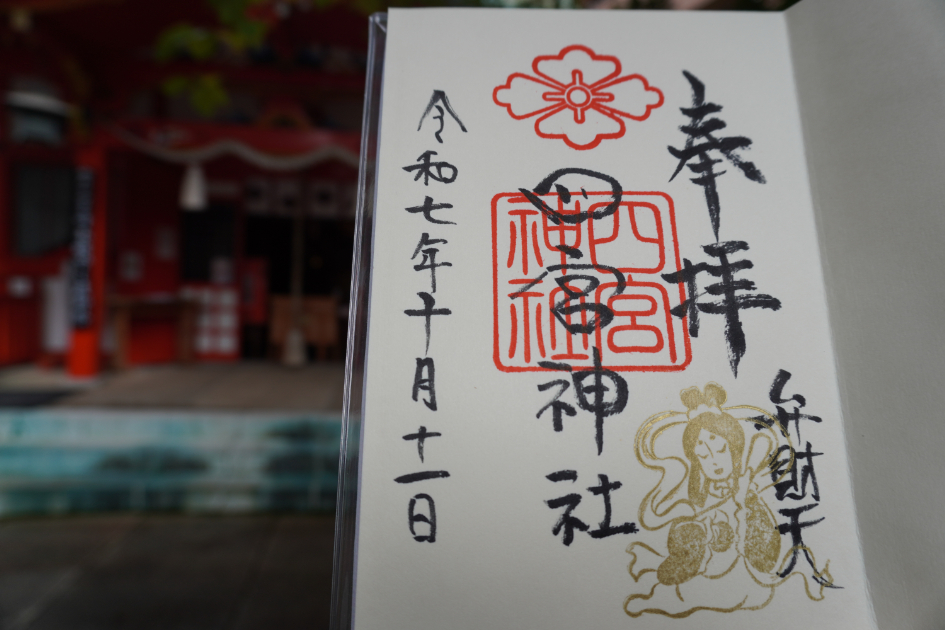 奉拝
弁財天
四宮神社
四宮
神社
令和七年十月十一日